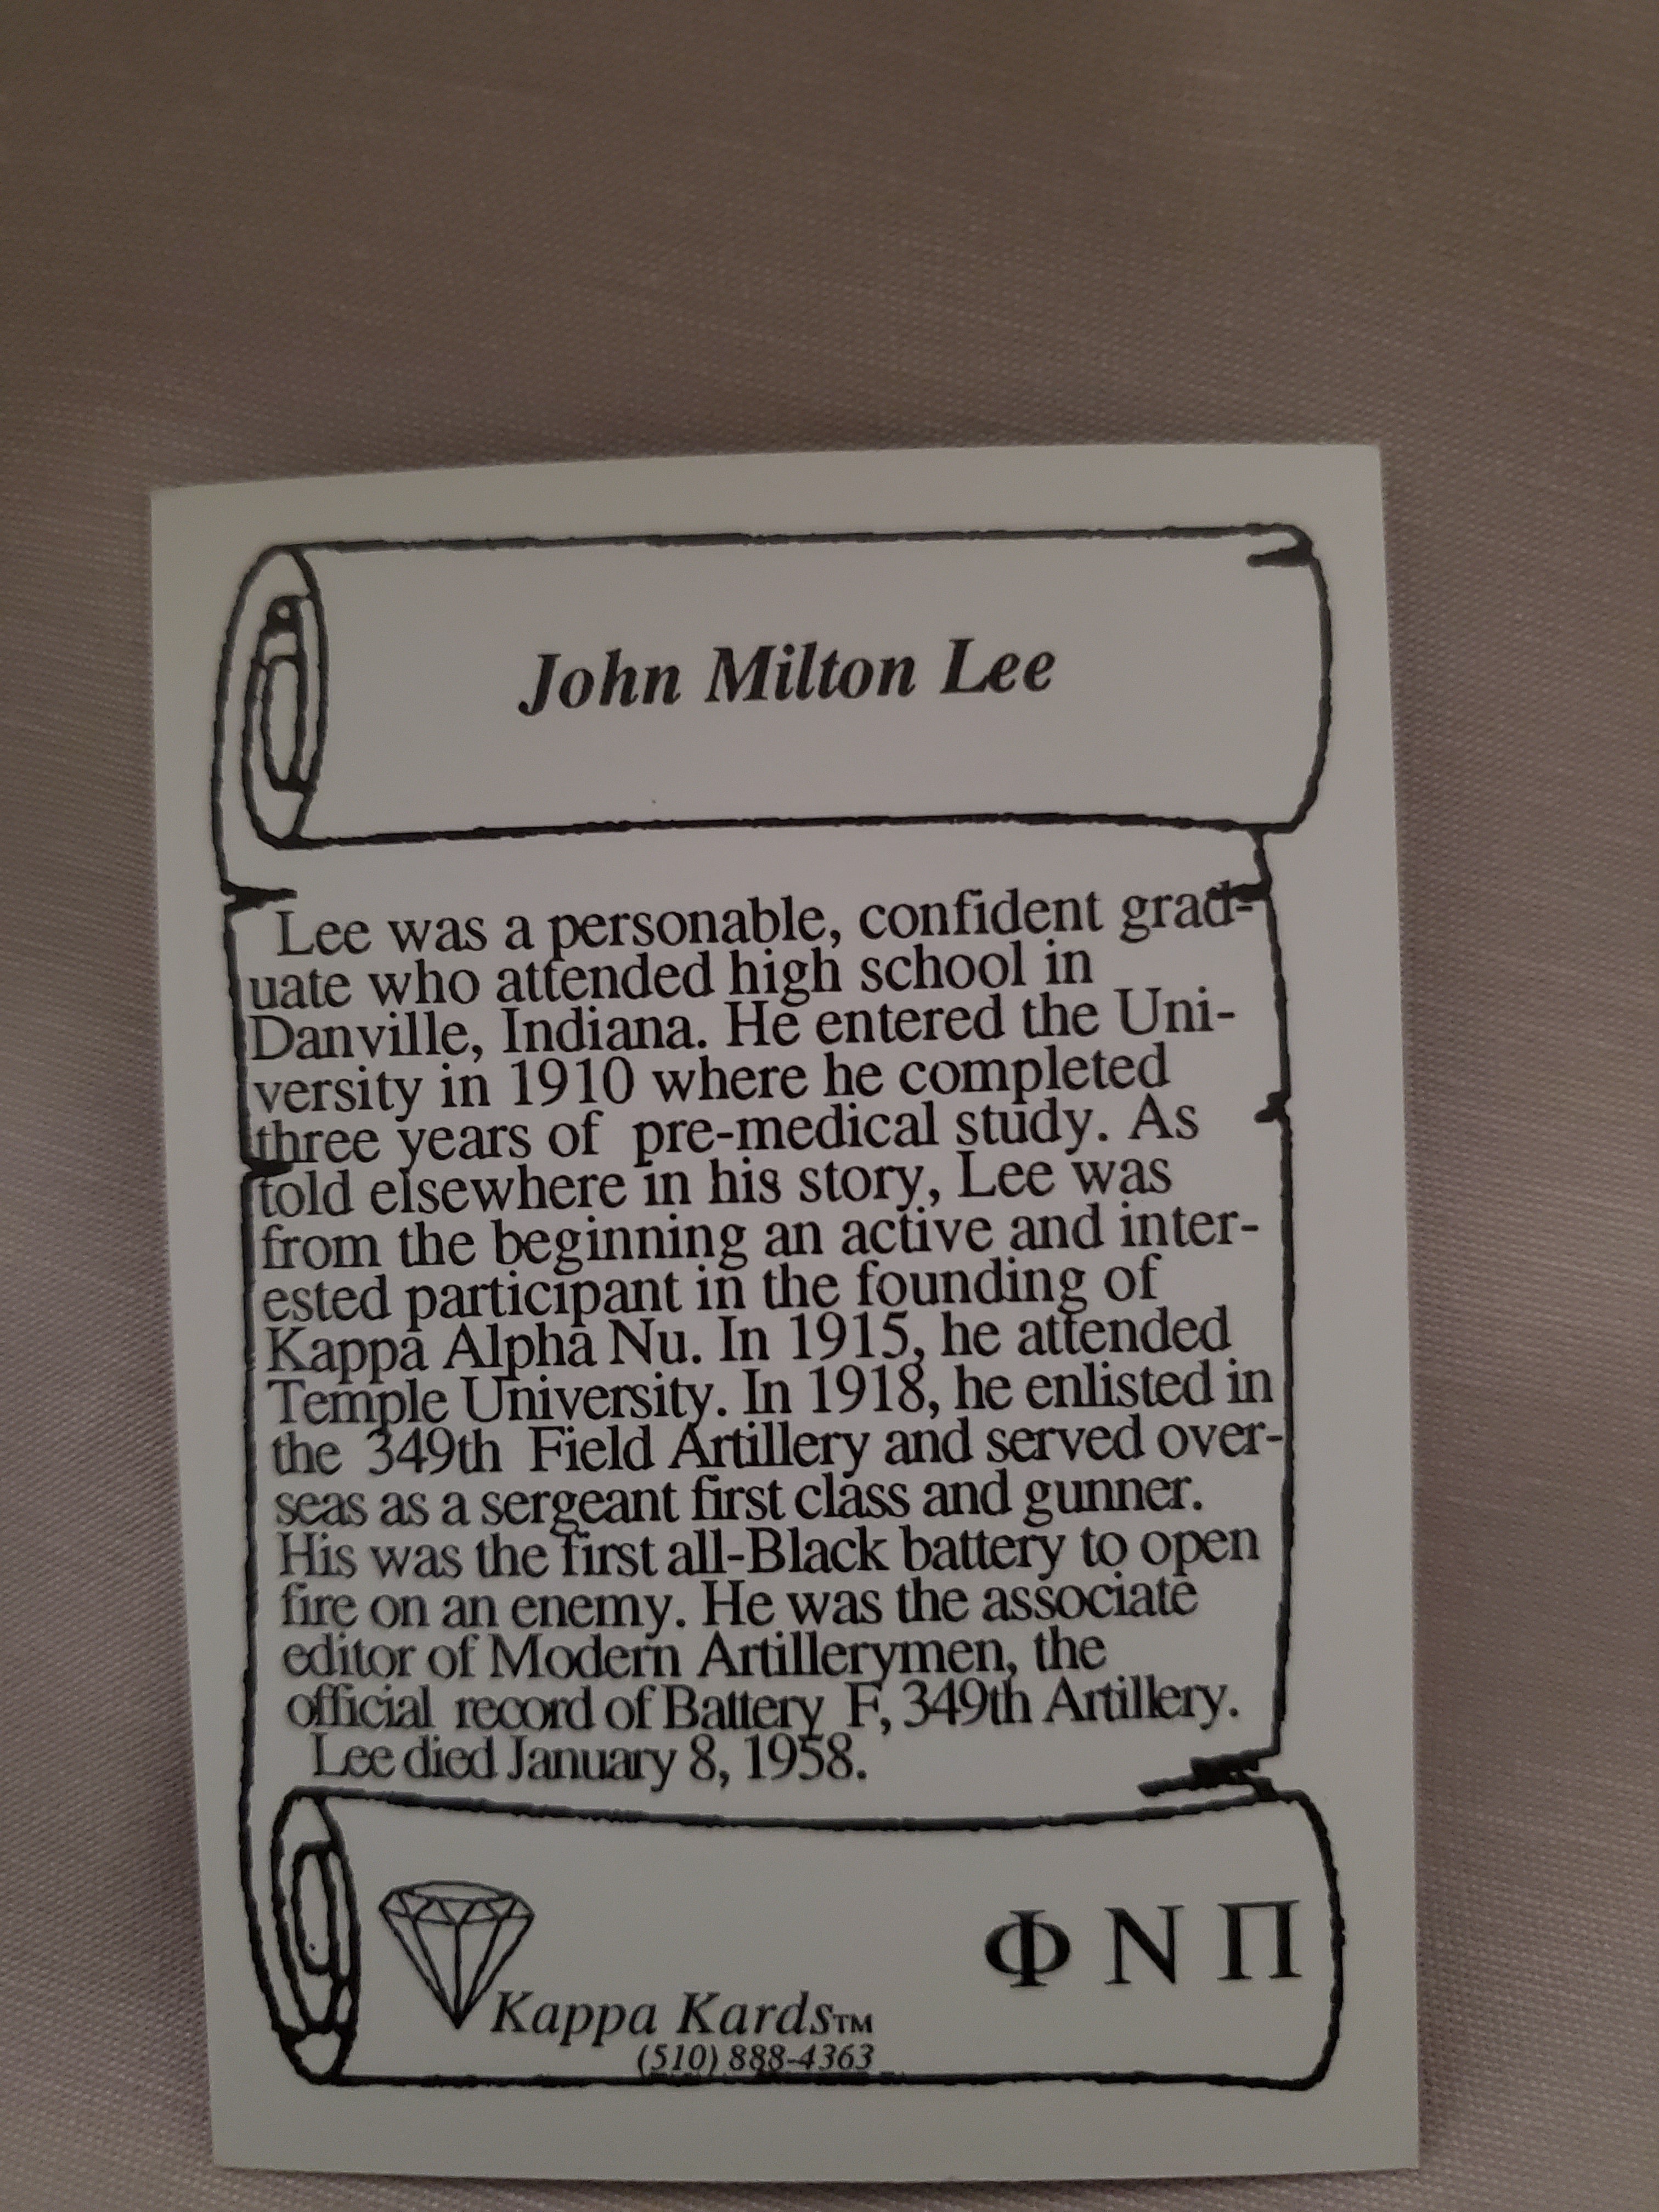 John Milton Lee
Lee was a personable, confident grad-
uate who attended high school in
Danville, Indiana. He entered the Uni-
versity in 1910 where he completed
three years of pre-medical study. As
told elsewhere in his story, Lee was
from the beginning an active and inter-
ested participant in the founding of
Kappa Alpha Nu. In 1915, he attended
Temple University. In 1918, he enlisted in
the 349th Field Artillery and served over-
seas as a sergeant first class and gunner.
His was the first all-Black battery to open
fire on an enemy. He was the associate
editor of Modern Artillerymen, the
official record of Battery F, 349th Artillery.
Lee died January 8, 1958.
Φ Ν Π
Kappa Kards™
(510) 888-4363